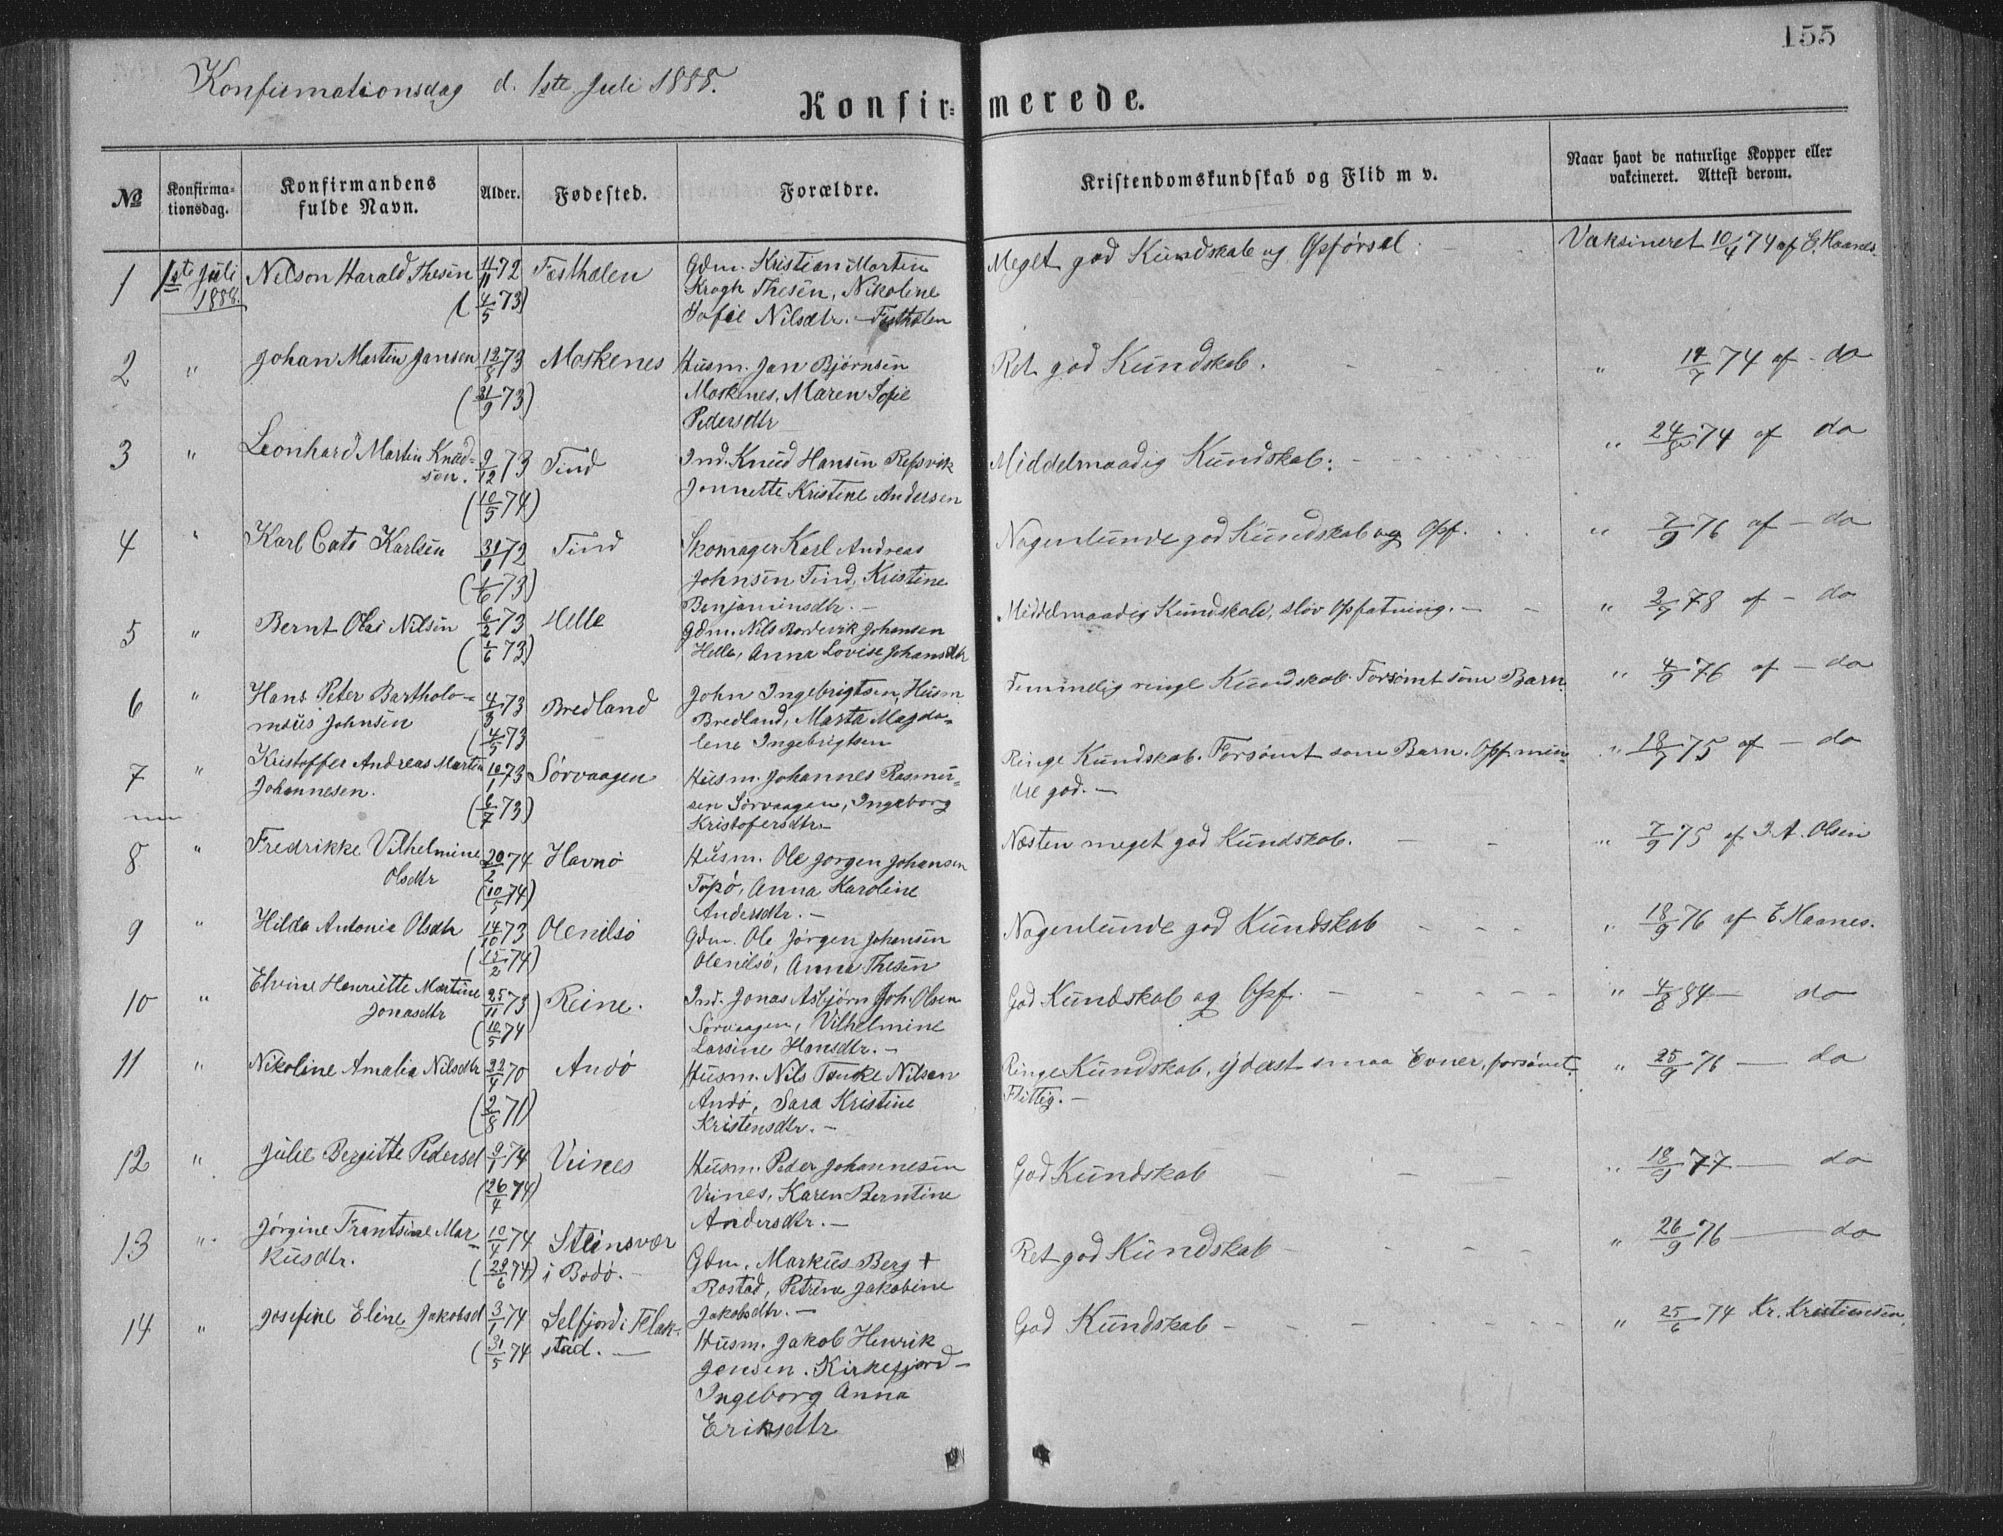 155
Konfirmationsdag d. 1ste Juli 1888.
Konfir-merede.
№ | Konfirma-tionsdag. | Konfirmandens fulde Navn. | Alder. | Fødested. | Forældre. | Kristendomskundskab og Flid m v. | Naar havt de naturlige Kopper eller vakcineret. Attest derom.
1 1ste Juli Nelson Harald Thesen 11/11 72 Festhalen Gdm. Kristian Martin Meget god Kundskab og Opførsel. Vaksineret 10/4 74 af E. Haanes.
1888. (4/5 73) Krogh Thesen, Nikoline
Sofie Nilsdtr. - Festhalen
2 " Johan Martin Jansen 12/8 73 Moskenes Husm. Jan Bjørnsen Ret god Kundskab. " 14/7 74 af - do
(21/9 73) Moskenes, Maren Sofie
Pedersdtr
3 " Leonhard Martin Knud- 9/12 73 Tind Ind. Knud Hansen Refsvik Middelmaadig Kundskab. " 24/8 74 af do
sen. (10/5 74) Jonnette Kristine Andersen
4 " Karl Cato Karlsen 31/1 72 Tind Skomager Karl Andreas Nogenlunde god Kundskab og Opf. " 7/9 76 af - do
(1/6 73) Johnsen Tind, Kristine
Benjaminsdtr. -
5 " Bernt Olai Nilsen 6/2 73 Helle Gdm. Nils Bordevik Johansen Middelmaadig Kundskab, sløv Opfatning. - " 2/7 78 af - do
(1/6 73) Helle, Anna Lovise Johansdtr
6 " Hans Peter Bartholo- 4/3 73 Bredland John Ingebrigtsen, Husm. Temmelig ringe Kundskab. Forsømt som Barn. " 4/9 76 af - do
mæus Johnsen (4/5 73 Bredland, Marta Magda-
lene Ingebrigtsen
7 " Kristoffer Andreas Martin 10/1 73 Sørvaagen Husm. Johannes Rasmus- Ringe Kundskab. Forsømt som Barn. Opf. min- " 18/7 75 af - do
Johannesen. (6/7 73) sen Sørvaagen, Ingeborg dre god. -
Kristofersdtr.
8 " Fredrikke Vilhelmine 20/2 74 Havnø Husm. Ole Jørgen Johansen Næsten meget god Kundskab. " 7/9 75 af J. A. Olsen
Olsdtr (10/5 74) Topø, Anna Karoline
Andersdtr. -
9 " Hilda Antonie Olsdtr 14/10 73 Olenilsø Gdm. Ole Jørgen Johansen Nogenlunde god Kundskab " 18/9 76 af E. Haanes.
(15/2 74) Olenilsø, Anna Thesen
10 " Elvine Henriette Martine 25/11 73) Reine. Ind. Jonas Asbjørn Joh. Olsen God Kundskab og Opf. " 4/8 84 - do
Jonasdtr (10/5 74 Sørvaagen, Vilhelmine
Larsine Hansdtr. -
11 " Nikoline Amalia Nilsdtr 22/4 70 Andø Husm. Nils Nilsen Ringe Kundskab, yderst smaa Evner, forsømt. " 25/9 76 - do
(2/8 71) Andø, Sara Kristine Flittig. -
Kristensdtr. -
12 " Julie Bergitte Pedersd 9/1 74 Veines Husm. Peder Johannesen God Kundskab " 18/9 77 - do
(26/4 74) Veines, Karen Berntine
Andersdtr. -
13 " Jørgine Frantsine Mar- 10/4 74 Steinsvær Gdm. Markus Berg + Ret god Kundskab " 26/9 76 - do
kusdtr. (29/6 74) i Bodø. - Rostad, Petrine Jakobine
Jakobsdtr. -
14 " Josefine Eline Jakobsd 3/1 74 Selfjord i Flak- Husm. Jakob Henrik God Kundskab - " 25/6 74 Kr. Kristiansen.
(31/5 74 stad. - Jensen. Kirkefjord -
Ingeborg Anna
Eriksdtr